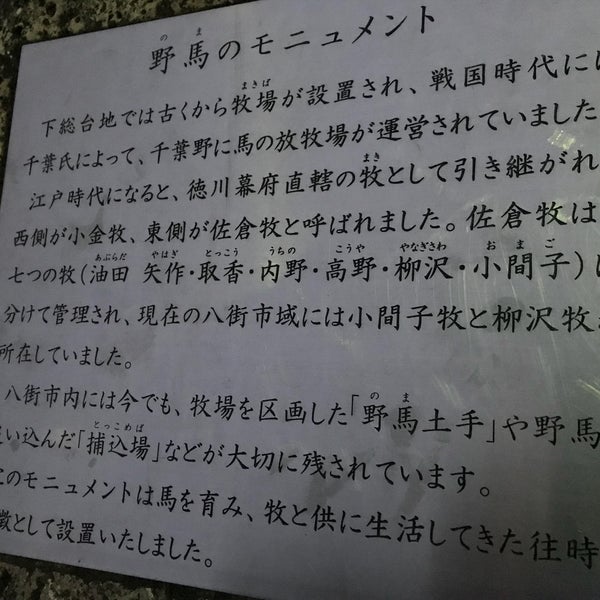 野馬のモニュメント
下総台地では古くから牧場が設置され、戦国時代に
千葉氏によって、千葉野に馬の放牧場が運営されていました
江戸時代になると、徳川幕府直轄の牧として引き継がれ
西側が小金牧、東側が佐倉牧と呼ばれました。佐倉牧は
七つの牧(油田 矢作・取香・内野・高野・柳沢・小間子)
分けて管理され、現在の八街市域には小間子牧と柳沢牧
所在していました。
八街市内には今でも、牧場を区画した「野馬土手」や野馬
い込んだ「捕込場」などが大切に残されています。
のモニュメントは馬を育み、牧と供に生活してきた往時
徴として設置いたしました。